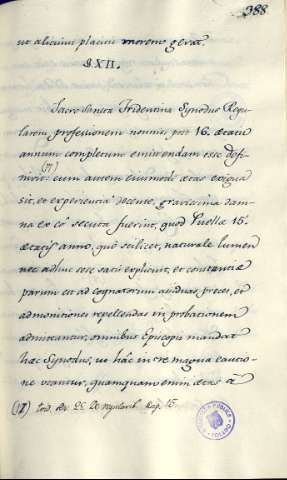 388
ut alicui placiti morem gerat.
§ XII.
Sacro Sancta Tridentina Synodus Regu-
larem professionem nonnisi, post 16. ætatis
annum completum emittendam esse defi-
(17)
nivit: cum autem eiusmodi ætas exigua
sit, et experientia docente, gravissima dam-
na ex eo secuta fuerint, quod Puellæ 15.
ætatis anno, quo scilicet, naturale lumen
nec adhuc sese satis explicuit, et constantiæ
parum est ad cognatorum assiduas preces, et
admonitiones repellendas in probationem
admittantur, omnibus Episcopis mandat
hæc Synodus, ut hac in re magna cautio-
ne utantur, quamquam enim ætas a
(17) Sess. 25. De regularib. Cap. 15.